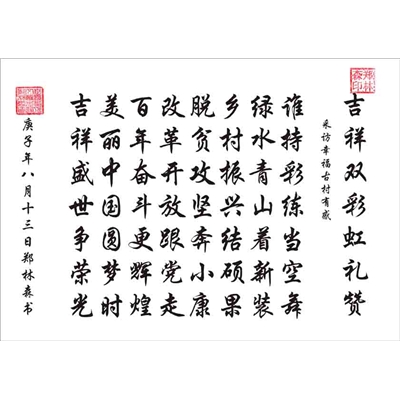 吉祥双彩虹礼赞
采访幸福古村有感
谁持彩练当空舞
绿水青山着新装
乡村振兴结硕果
脱贫攻坚奔小康
改革开放跟党走
百年奋斗更辉煌
美丽中国圆梦时
吉祥盛世争荣光
庚子年八月十三日郑林森书
郑林森印